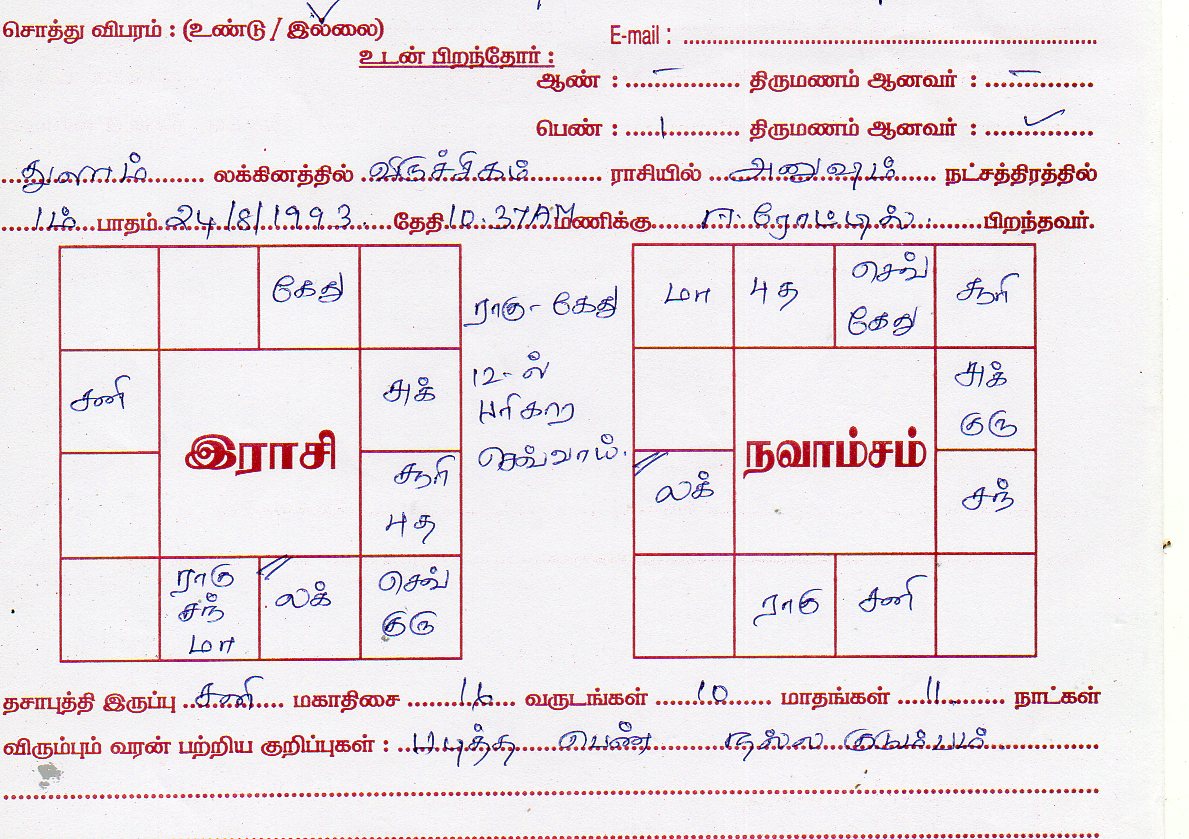 சொத்து விபரம் : (உண்டு / இல்லை)
E-mail : ..........
உடன் பிறந்தோர் :
ஆண் : – திருமணம் ஆனவர் : –
பெண் : 1 திருமணம் ஆனவர் : ✓
துலாம் லக்கினத்தில் விருச்சிகம் ராசியில் அனுஷம் நட்சத்திரத்தில்
1ம் பாதம் 24/8/1993 தேதி 10.37AM மணிக்கு பிறந்தவர்.
கேது
சனி
அக்
இராசி
சூரி
புத
ராகு
சந்
மா
லக்
செவ்
குரு
ராகு - கேது
12-ல்
பரிகார
செவ்வாய்.
மா
புத
செவ்
கேது
சூரி
அக்
குரு
நவாம்சம்
லக்
சந்
ராகு
சனி
தசாபுத்தி இருப்பு சனி மகாதிசை 16 வருடங்கள் 10 மாதங்கள் 11 நாட்கள்
விரும்பும் வரன் பற்றிய குறிப்புகள் : படித்த பெண் நல்ல குடும்பம்